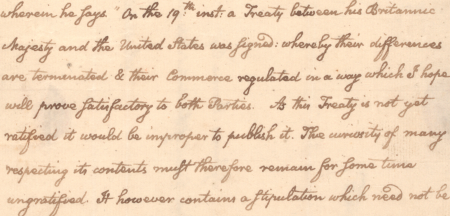 wherein he says. "On the 19.th inst: a Treaty between his Britannic
Majesty and the United States was signed: whereby their differences
are terminated & their Commerce regulated in a way which I hope
will prove satisfactory to both Parties. As this Treaty is not yet
ratified it would be improper to publish it. The curiosity of many
respecting its contents must therefore remain for some time
ungratified. It however contains a stipulation which need not be